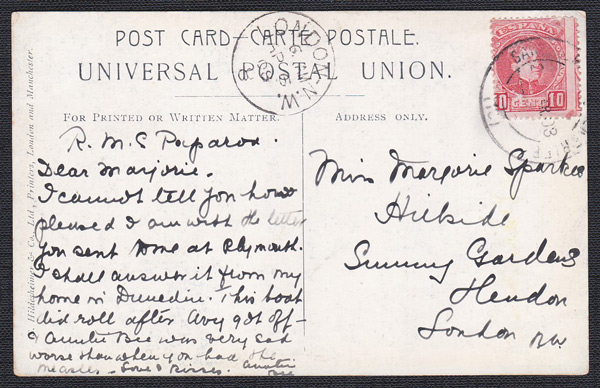 POST CARD—CARTE POSTALE.
UNIVERSAL POSTAL UNION.
LONDON. N.W.
ESPAÑA
10 CENTS 10
FOR PRINTED OR WRITTEN MATTER.
ADDRESS ONLY.
Hildesheimer & Co., Ltd., Printers, London and Manchester.
R. M. S Paparoa.
Dear Marjorie.
I cannot tell you how
pleased I am with the letter
you sent to me at Plymouth.
I shall answer it from my
home in Dunedin. This boat
did roll after we got off-
& Auntie Bee was very sad
worse than when you had the
measles - Love & Kisses. Auntie
Bee
Miss Marjorie
Hillside
Sunny Gardens
Hendon
London NW.